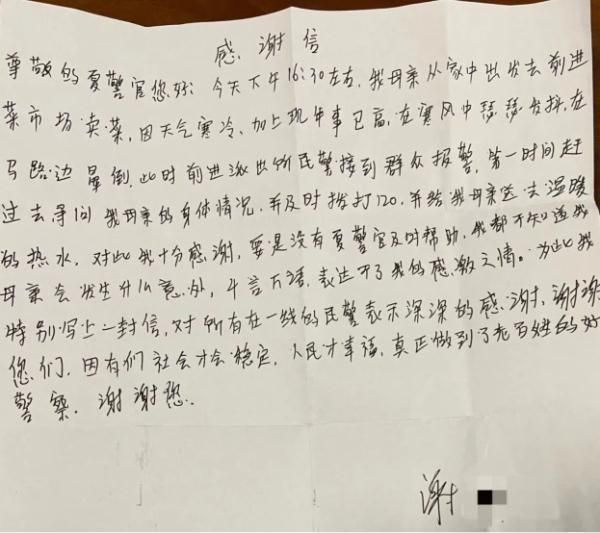 感谢信
尊敬的夏警官您好：今天下午16:30左右，我母亲从家中出发去前进
菜市场卖菜，因天气寒冷，加上现年事已高，在寒风中瑟瑟发抖，在
马路边晕倒，此时前进派出所民警接到群众报警，第一时间赶
过去寻问我母亲的身体情况，并及时拨打120，并给我母亲送去温暖
的热水，对此我十分感谢，要是没有夏警官及时帮助，我都不知道我
母亲会发生什么意外，千言万语，表达不了我的感激之情。为此我
特别写上一封信，对所有在一线的民警表示深深的感谢，谢谢
您们，因有们社会才会稳定，人民才幸福，真正做到了老百姓的好
警察，谢谢您。
谢